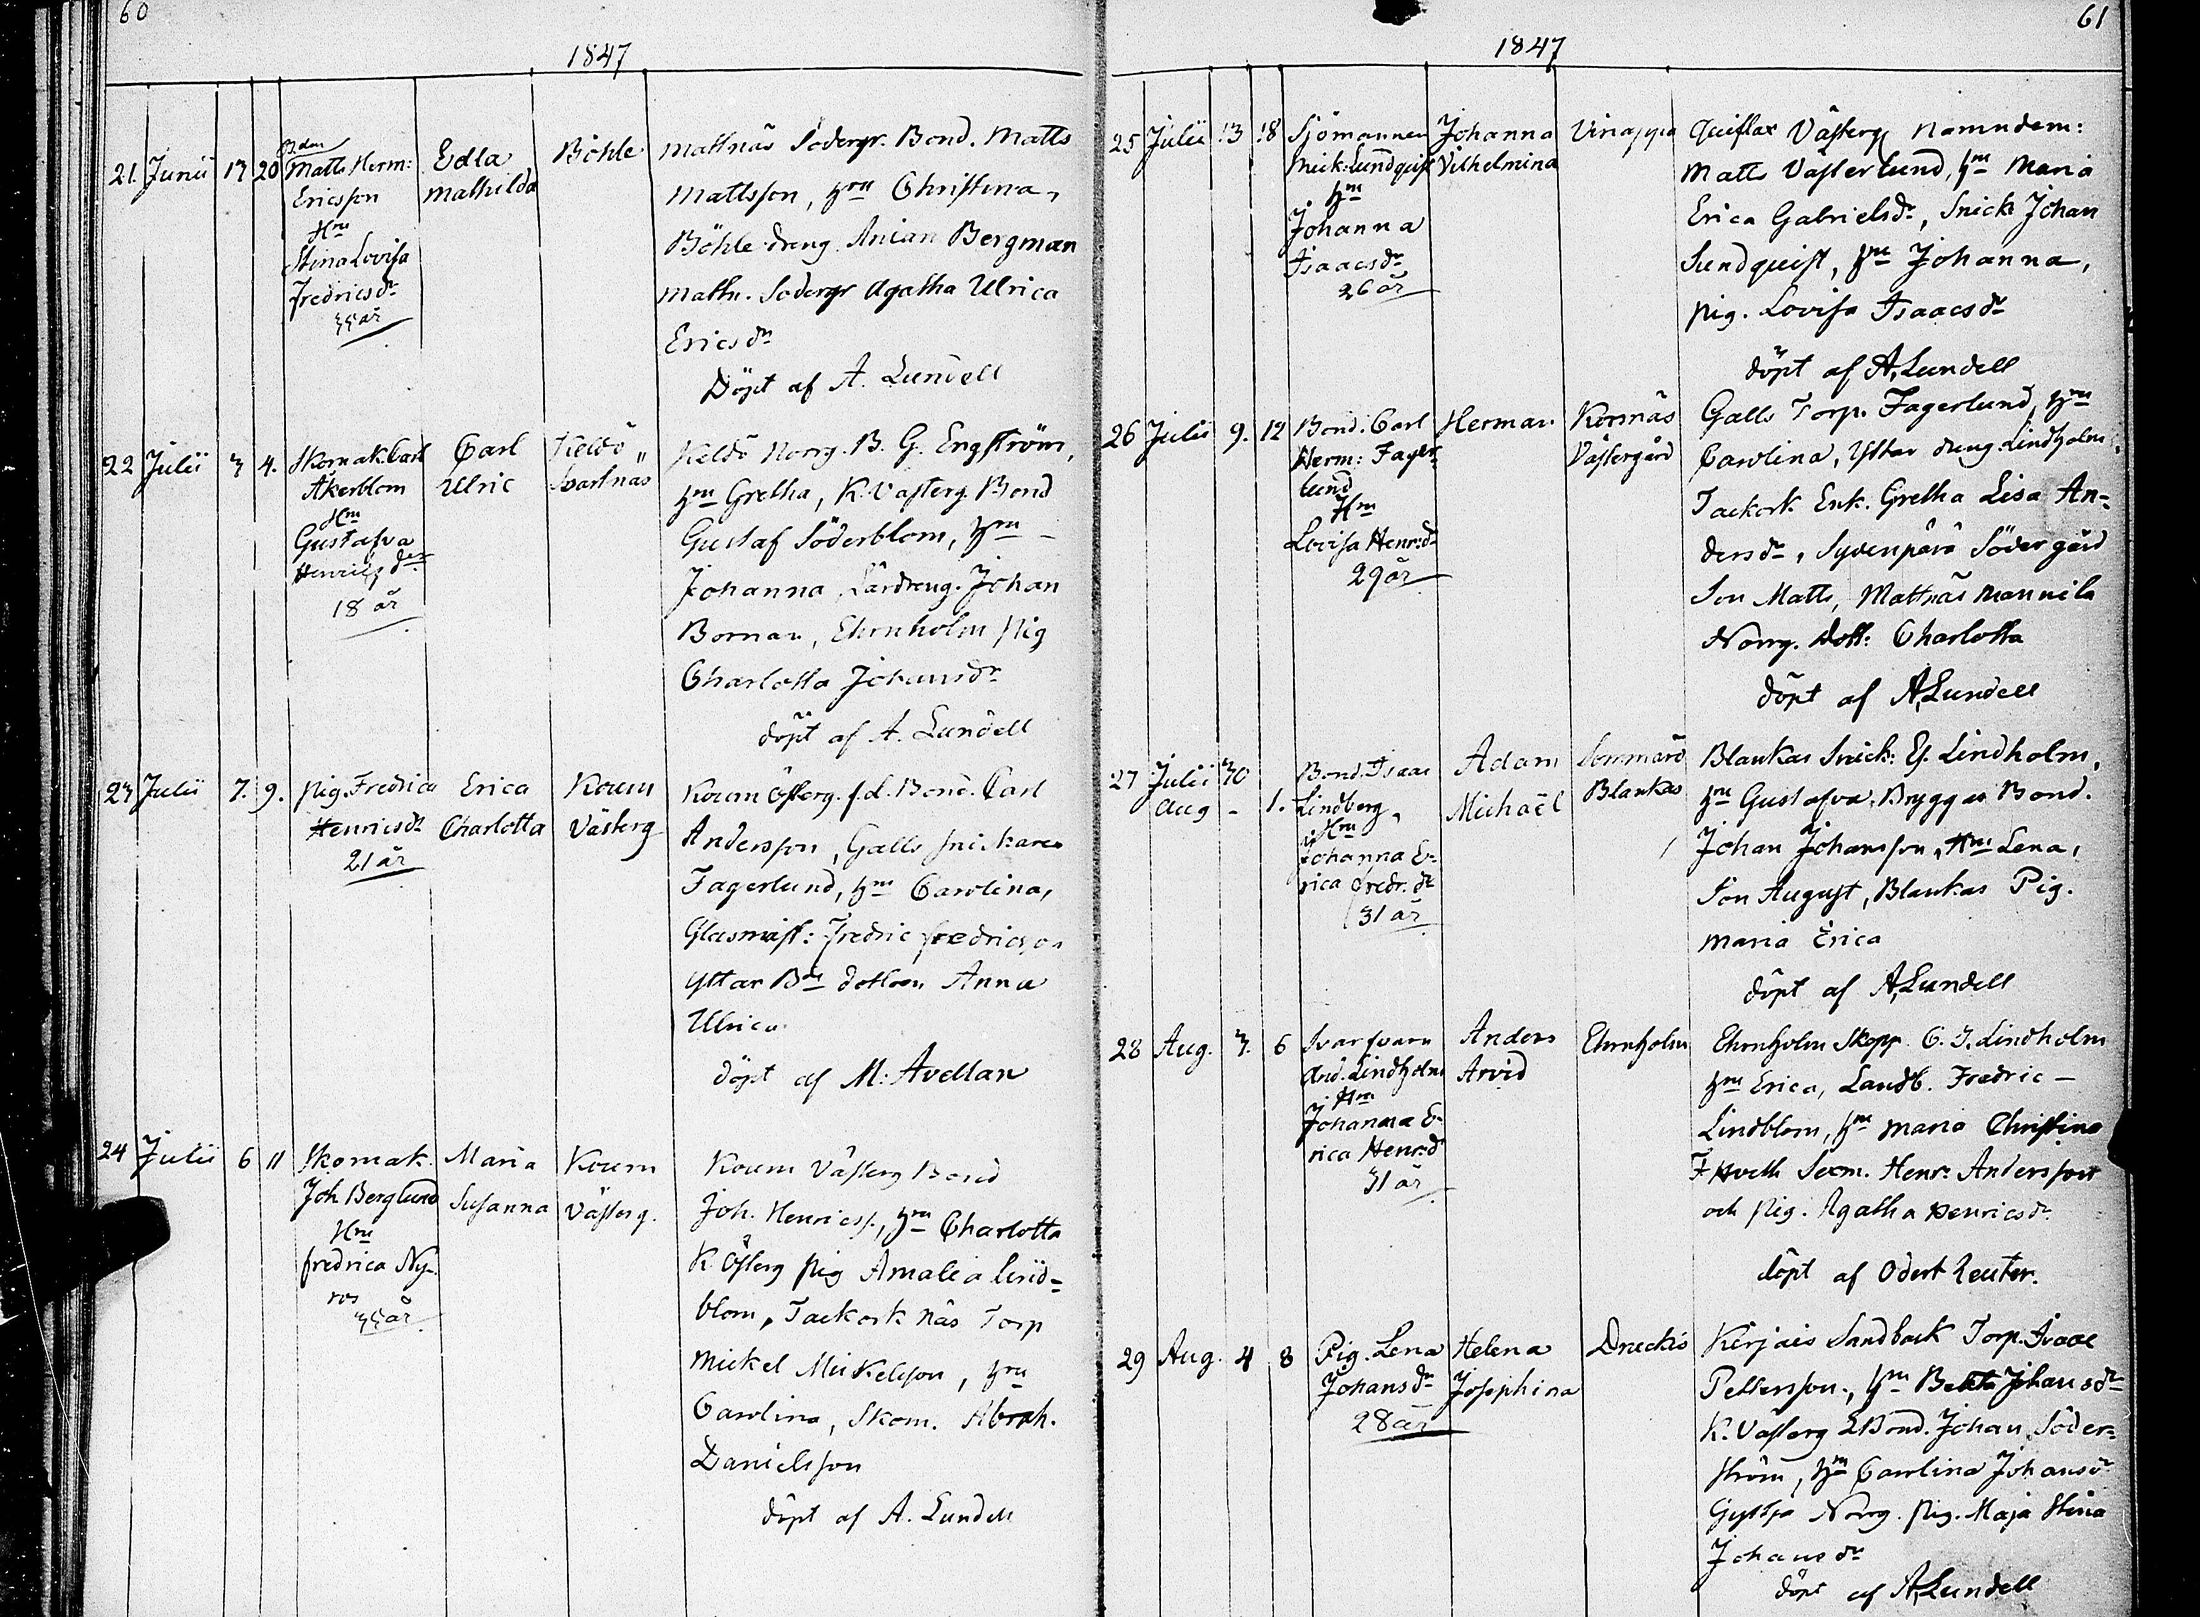 60
1847
21. Junii 17 20 Bdm
Matts Herm:
Ericsson
Hru
Stina Lovisa
Fredricsdr
35 år
Edla
Mathilda
Böhle
Mattnäs Södergr. Bond. Matts
Mattsson, hru Christina,
Böhle dreng. Anian Bergman
Mattn. Södergr Agatha Ulrica
Ericsdr
Döpt af A. Lundell
22 Julii 3 4. Skomak. Carl
Åkerblom
Hru
Gustafva
Henricsdr
18 år
Carl
Ulric
Keldö
Svartnäs
Keldö Norrg. B. G. Engström,
hru Gretha, K. Västerg. Bond
Gustaf Söderblom, hru
Johanna, Lärdreng. Johan
Borman, Ehrnholm pig
Charlotta Johansdr
döpt af A. Lundell
23 Julii 7. 9. Pig. Fredrica
Henricsdr
21 år
Erica
Charlotta
Korum
Västerg
Korum Österg. f.d. Bond. Carl
Andersson, Galls snickaren
Fagerlund, hru Carolina,
Glasmäst: Fredric Fredricson
Yttar Bds dottren Anna
Ulrica
döpt af M. Avellan
24 Julii 6 11 Skomak.
Joh Berglund
Hru
Fredrica Ny-
ros
35 år
Maria
Susanna
Korum
Västerg.
Korum Västerg Bond
Joh. Henricss., hru Charlotta
K. Österg pig Amalia Lind=
blom, Tackork Näs Torp
Mickel Mickelsson, hru
Carolina, Skom. Abrah.
Danielsson
döpt af A. Lundell
61
1847
25 Julii 13 18 Sjömannen
Mick. Lundquist
hru
Johanna
Isaacsdr
26 år
Johanna
Vilhelmina
Quiflax Västerg Nämndem:
Matts Västerlund, hru Maria
Erica Gabrielsdr, Snick Johan
Sundquist, hru Johanna,
pig. Lovisa Isaacsdr
döpt af A. Lundell
26 Julii 9. 12 Bond. Carl
Herm: Fager=
lund
Hru
Lovisa Henr:dr
29 år
Herman
Kornäs
Västergård
Galls Torp. Fagerlund, hru
Carolina, Yttar dreng. Lindholm,
Tackork Enk. Gretha Lisa An=
dersdr, Sydenpärä Södergård
Son Matts, Mattnäs Mannila
Norrg. Dott: Charlotta
döpt af A. Lundell
27 Julii 30
Aug - 1. Bond. Isaac
Lindberg,
Hru
Johanna E=
rica Fredr.dr
31 år
Adam
Michaël
Sommarö
Blankas
Blankas Snick: Ef. Lindholm,
hru Gustafva, Bryggas Bond.
Johan Johansson, Hru Lena,
Son August, Blankas Pig.
Maria Erica
döpt af A. Lundell
28 Aug. 3. 6 Svarfvarn
And. Lindholm
Hru
Johanna E-
rica Henr:dr
31 år
Anders
Arvid
Ehrnholm
Ehrnholm Skepp. C. J. Lindholm
hru Erica, Landb. Fredric
Lindblom, hru Maria Christina
Sexm. Henr. Andersson
och pig. Agatha Henricsdr
döpt af Odert Reuter.
29 Aug. 4 8 Pig. Lena
Johansdr
28 år
Helena
Josephina
Dreckis
Kirjais Sandback Torp. Isaac
Pettersson, hru Johansdr
K. Västerg Bond. Johan Söder=
ström, hru Carolina Johansdr
Gyttja Norrg. pig. Maja Stina
Johansdr
döpt af A. Lundell